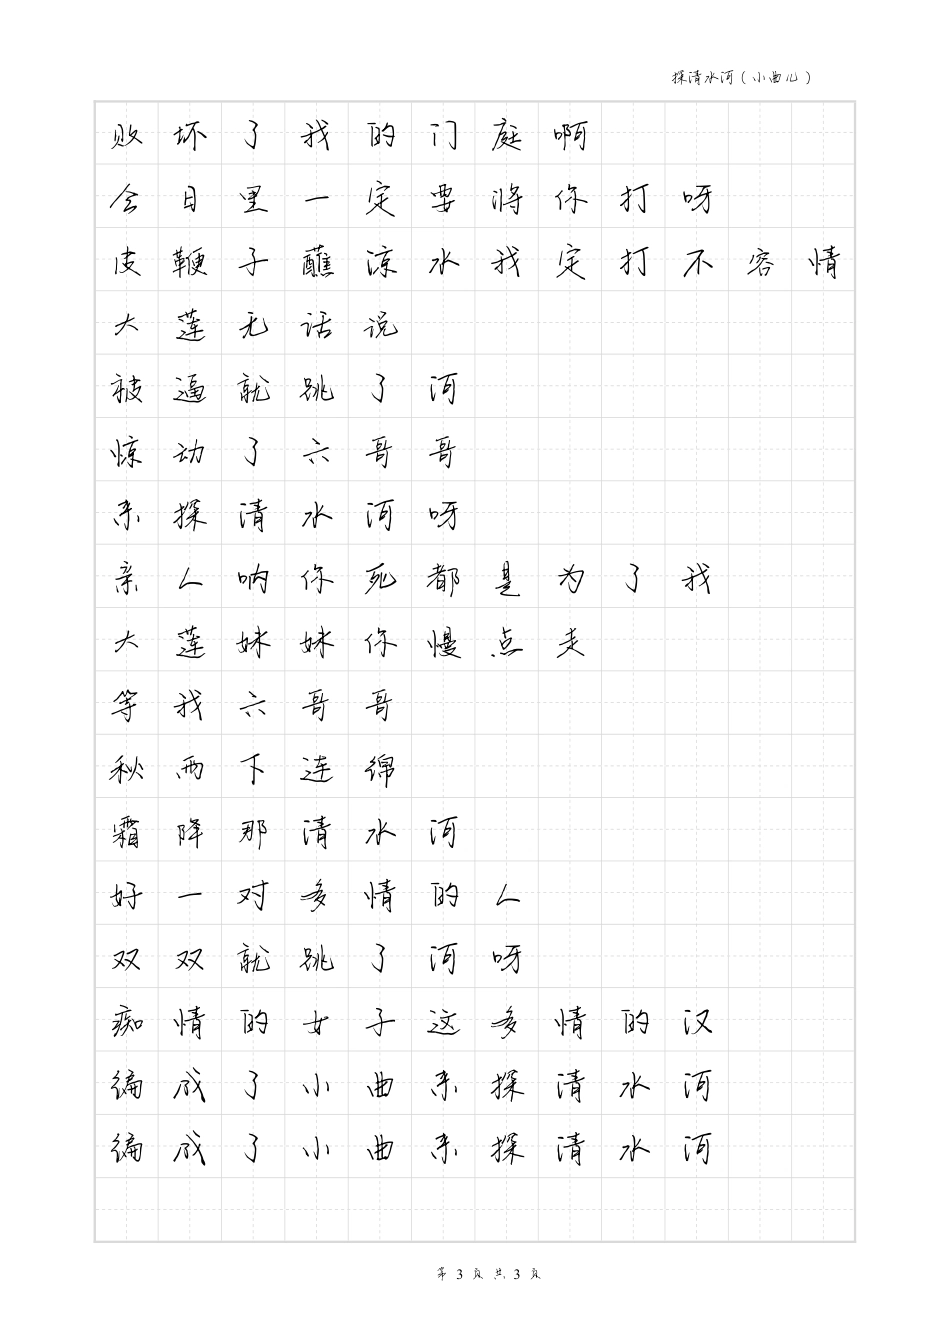 探清水河（小曲儿）
败坏了我的门庭啊
今日里一定要将你打呀
皮鞭子蘸凉水我定打不容情
大莲无话说
被逼就跳了河
惊动了六哥哥
来探清水河呀
亲人呐你死都是为了我
大莲妹妹你慢点走
等我六哥哥
秋雨下连绵
霜降那清水河
好一对多情的人
双双就跳了河呀
痴情的女子这多情的汉
编成了小曲来探清水河
编成了小曲来探清水河
第 3 页 共 3 页